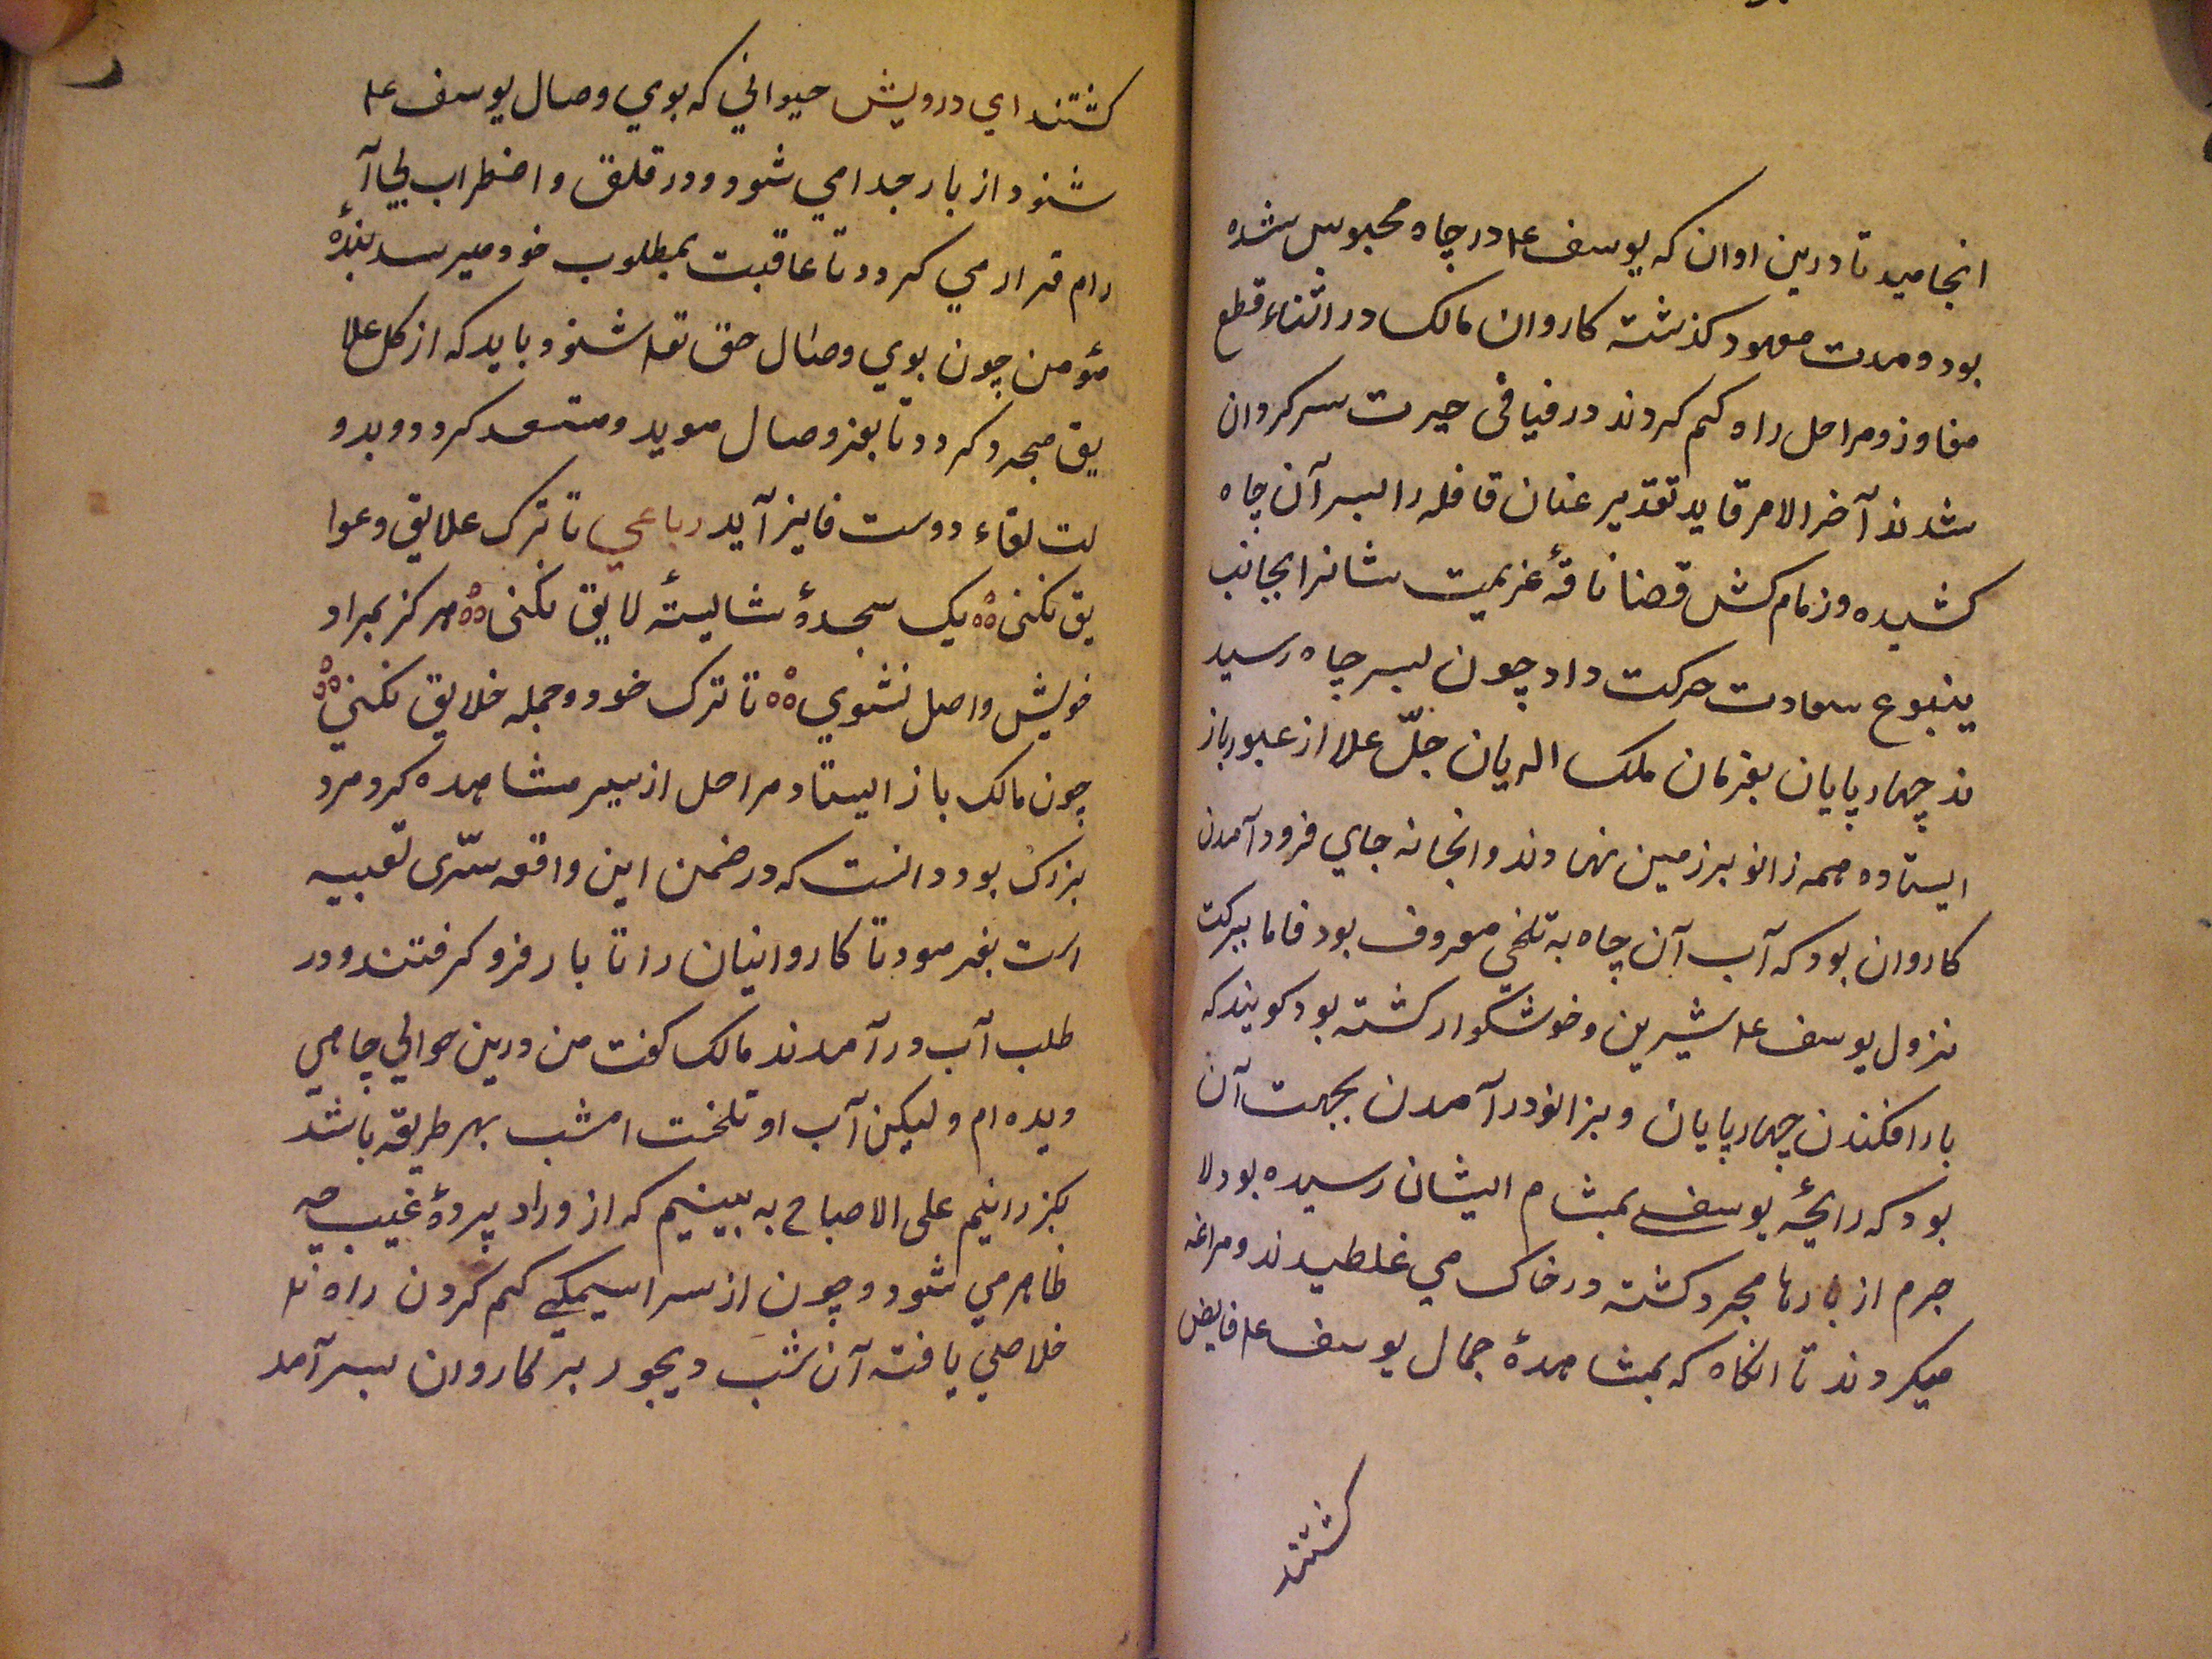 انجامید تا درین اوان که یوسف عم در چاه محبوس شده
بود و مدت معهود کذشته کاروان مالک در اثناء قطع
مفاوز و مراحل راه کم کردند در فیافی حیرت سرکردان
شدند آخر الامر قاید تقدیر عنان قافله را بسر آن چاه
کشیده و زمام کش قضا ناقهٔ عزیمت شانرا بجانب
ینبوع سعادت حرکت داد چون بسر چاه رسید
ند چهار پایان بفرمان ملک الدیان جلّ علا از عبور باز
ایستاده همه زانو بر زمین نهادند و انجا نه جای فرود آمدن
کاروان بود که آب آن چاه به تلخي معروف بود فاما ببرکت
نزول یوسف عم شیرین و خوشکوار کشته بود کویند که
بار افکندن چهار پایان و بزانو در آمدن بجهت آن
بود که رایحهٔ یوسف بمشام ایشان رسیده بود لا
جرم از بارها مجرد کشته در خاک مي غلطیدند و مراغه
میکردند تا انکاه که بمشاهدهٔ جمال یوسف عم فایض
کشتند
کشتند اي درویش حیواني که بوي وصال یوسف عم
شنود از بار جدا مي شود و در قلق و اضطراب بي آ
رام قرار مي کردد تا عاقبت بمطلوب خود میرسد بندهٔ
مؤمن چون بوي وصال حق تعم شنود باید که از کل علا
یق مجرد کردد تا بعز وصال موید و مستعد کردد و بدو
لت لقاء دوست فایز آید رباعي تا ترک علایق و عوا
یق نکنی یک سجدهٔ شایستهٔ لایق نکنی هرکز بمراد
خویش واصل نشوي تا ترک خود و جمله خلایق نکني
چون مالک باز ایستاد مراحل از سیر مشاهده کرد مرد
بزرک بود دانست که در ضمن این واقعه سرّی تعبیه
است بفرمود تا کاروانیان را تا بار فرو کرفتند و در
طلب آب در آمدند مالک کفت من درین حوالي چاهي
دیده ام ولیکن آب او تلخست امشب بهر طریقه باشد
بکزرانیم علی الاصباح به بینیم که از وراد پردهٔ غیب چه
ظاهر مي شود و چون از سراسیمکي کم کردن راه نه
خلاصي یافته آن شب دیجور بر کاروان بسر آمد